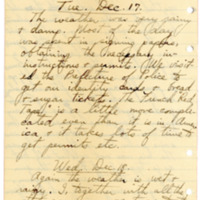 Tue. Dec. 17.
The weather was very rainy
& damp. Most of the day
was spent in signing papers,
obtaining the necessary in-
structions & permits. We visit-
ed the Prefecture of Police to
get our identity cards & bread
& sugar tickets. The French Red
Tape is a little more compli-
cated even than it is in Ame
ica, & it takes lots of time to
get permits etc.
Wed. Dec. 18.
Again the weather is wet &
rainy. I together with all the